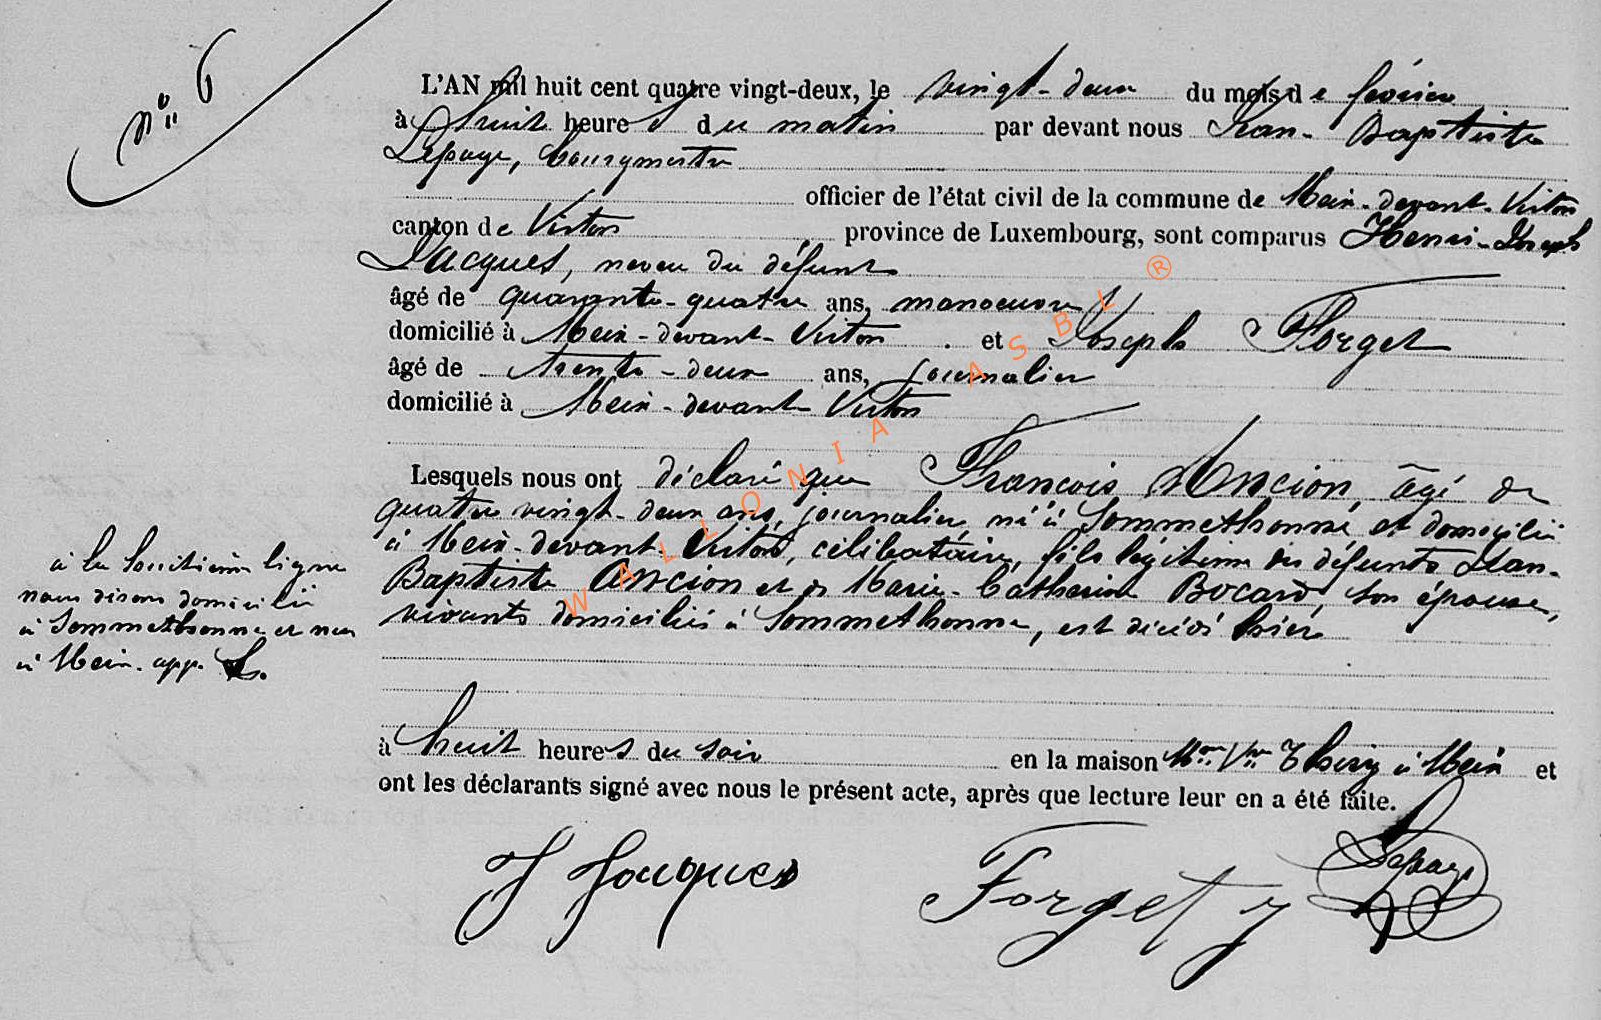 N° 6
L'AN mil huit cent quatre vingt-deux, le vingt-deux du mois de février
à huit heures du matin par devant nous Jean-Baptiste
Lepage, bourgmestre
officier de l'état civil de la commune de Meix-devant-Virton
canton de Virton province de Luxembourg, sont comparus Henri-Joseph
Jacques, neveu du défunt
âgé de quarante-quatre ans, manoeuvre
domicilié à Meix-devant-Virton. et Joseph Forget
âgé de trente-deux ans, journalier
domicilié à Meix-devant Virton
Lesquels nous ont déclaré que François Ancion, âgé de
quatre vingt-deux ans, journalier né à Sommethonne, et domicilié
à Meix-devant-Virton, célibataire, fils légitime des défunts Jean-
Baptiste Ancion et de Marie-Catherine Bocard, son épouse,
vivants domiciliés à Sommethonne, est décédé hier
à huit heures du soir en la maison Mme Vve Thiry à Meix et
ont les déclarants signé avec nous le présent acte, après que lecture leur en a été faite.
à la ligne
nous disons domicilié
à Sommethonne et non
à Meix. app.
J Jacques
Forget J
Lepage
WALLONIA ASBL ®